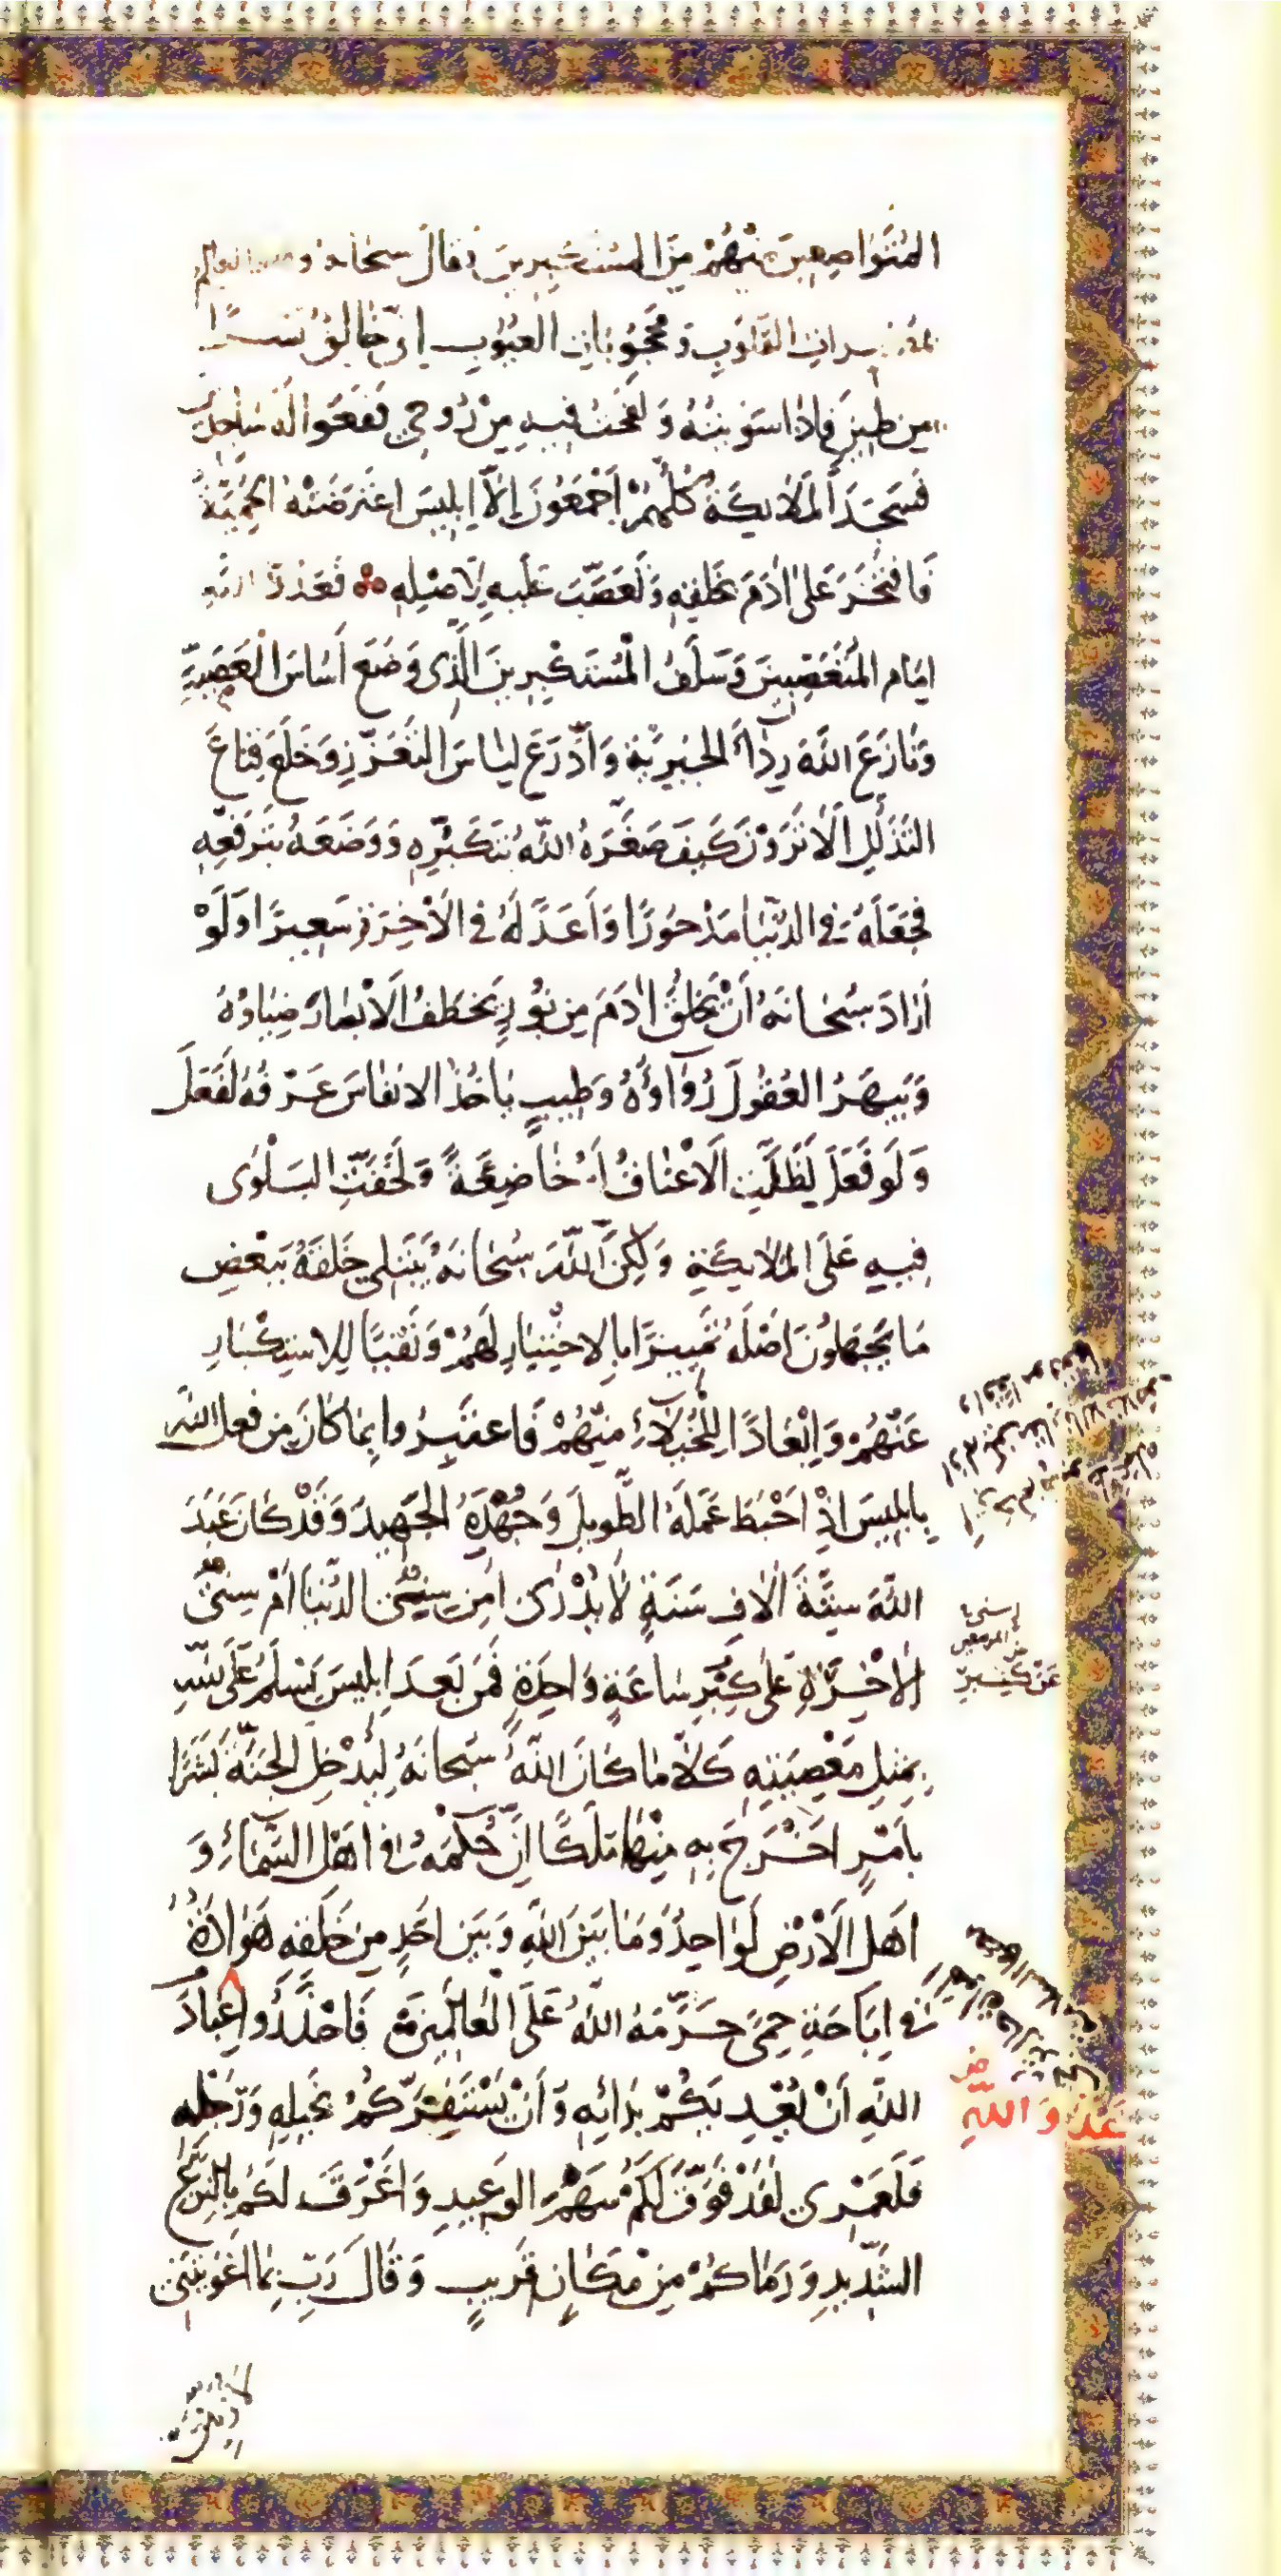 المُتَوَاضِعِينَ مِنْهُمْ مِنَ المُسْتَكْبِرِينَ فَقَالَ سُبْحَانَهُ وَهُوَ العَالِمُ
بِمُضْمَرَاتِ القُلُوبِ وَمَحْجُوبَاتِ الغُيُوبِ اِنّى خَالِقٌ بَشَرًا
مِن طِينٍ فَاِذَا سَوَّيْتُهُ وَنَفَخْتُ فِيهِ مِنْ رُوحِي فَقَعُوا لَهُ سَاجِدِينَ
فَسَجَدَ المَلَائِكَةُ كُلُّهُمْ اَجْمَعُونَ اِلَّا اِبْلِيسَ اعْتَرَضَتْهُ الحَمِيَّةُ
فَافْتَخَرَ عَلَى اٰدَمَ بِخَلْقِهِ وَتَعَصَّبَ عَلَيْهِ لِاَصْلِهِ فَعَدُوُّ اللّٰهِ
اِمَام المُتَعَصِّبِينَ وَسَلَفُ المُسْتَكْبِرِينَ الَّذِى وَضَعَ اَسَاسَ العَصَبِيَّةِ
وَنَازَعَ اللّٰهَ رِدَاءَ الجَبْرِيَّةِ وَادَّرَعَ لِبَاسَ التَّعَزُّزِ وَخَلَعَ قِنَاعَ
التَّذَلُّلِ اَلَا تَرَوْنَ كَيْفَ صَغَّرَهُ اللّٰهُ بِتَكَبُّرِهِ وَوَضَعَهُ بِتَرَفُّعِهِ
فَجَعَلَهُ فِى الدُّنْيَا مَدْحُورًا وَاَعَدَّ لَهُ فِى الاٰخِرَةِ سَعِيرًا وَلَوْ
اَرَادَ سُبْحَانَهُ اَنْ يَخْلُقَ اٰدَمَ مِن نُورٍ يَخْطَفُ الاَبْصَارَ ضِيَاؤُهُ
وَيَبْهَرُ العُقُولَ رُوَاؤُهُ وَطِيبٍ يَاخُذُ الاَنْفَاسَ عَرْفُهُ لَفَعَلَ
وَلَو فَعَلَ لَظَلَّتِ الاَعْنَاقُ لَهُ خَاضِعَةً وَلَخَفَّتِ البَلْوٰى
فِيهِ عَلَى المَلَائِكَةِ وَلٰكِنَّ اللّٰهَ سُبْحَانَهُ يَبْتَلِى خَلْقَهُ بِبَعْضِ
مَا يَجْهَلُونَ اَصْلَهُ تَمْيِيزًا بِالاِخْتِبَارِ لَهُمْ وَنَفْيًا لِلاِسْتِكْبَارِ
عَنْهُمْ وَاِبْعَادًا لِلْخُيَلَاءِ مِنْهُمْ فَاعْتَبِرُوا بِمَا كَانَ مِن فِعْلِ اللّٰهِ
بِاِبْلِيسَ اِذْ اَحْبَطَ عَمَلَهُ الطَّوِيلَ وَجُهْدَهُ الجَهِيدَ وَقَدْ كَانَ عَبَدَ
اللّٰهَ سِتَّةَ اٰلَافِ سَنَةٍ لَا يُدْرٰى اَمِن سِنِى الدُّنْيَا اَمْ سِنِى
الاٰخِرَةِ عَلٰى كِبْرِ سَاعَةٍ وَاحِدَةٍ فَمَن بَعْدَ اِبْلِيسَ يَسْلَمُ عَلَى اللّٰهِ
بِمِثْلِ مَعْصِيَتِهِ كَلَّا مَا كَانَ اللّٰهُ سُبْحَانَهُ لِيُدْخِلَ الجَنَّةَ بَشَرًا
بِاَمْرٍ اَخْرَجَ بِهِ مِنْهَا مَلَكًا اِنَّ حُكْمَهُ فِى اَهْلِ السَّمَاءِ وَ
اَهْلِ الاَرْضِ لَوَاحِدٌ وَمَا بَيْنَ اللّٰهِ وَبَيْنَ اَحَدٍ مِن خَلْقِهِ هَوَادَةٌ
فِى اِبَاحَةِ حِمًى حَرَّمَهُ اللّٰهُ عَلَى العَالَمِينَ فَاحْذَرُوا عِبَادَ
عَدُوَّ اللّٰهِ
اللّٰهِ اَنْ يُعْدِيَكُمْ بِدَائِهِ وَاَنْ يَسْتَفِزَّكُمْ بِخَيْلِهِ وَرَجْلِهِ
فَلَعَمْرِى لَقَدْ فَوَّقَ لَكُمْ سَهْمَ الوَعِيدِ وَاَغْرَقَ لَكُمْ بِالنَّزْعِ
الشَّدِيدِ وَرَمَاكُمْ مِنْ مَكَانٍ قَرِيبٍ وَقَالَ رَبِّ بِمَا اَغْوَيْتَنِى